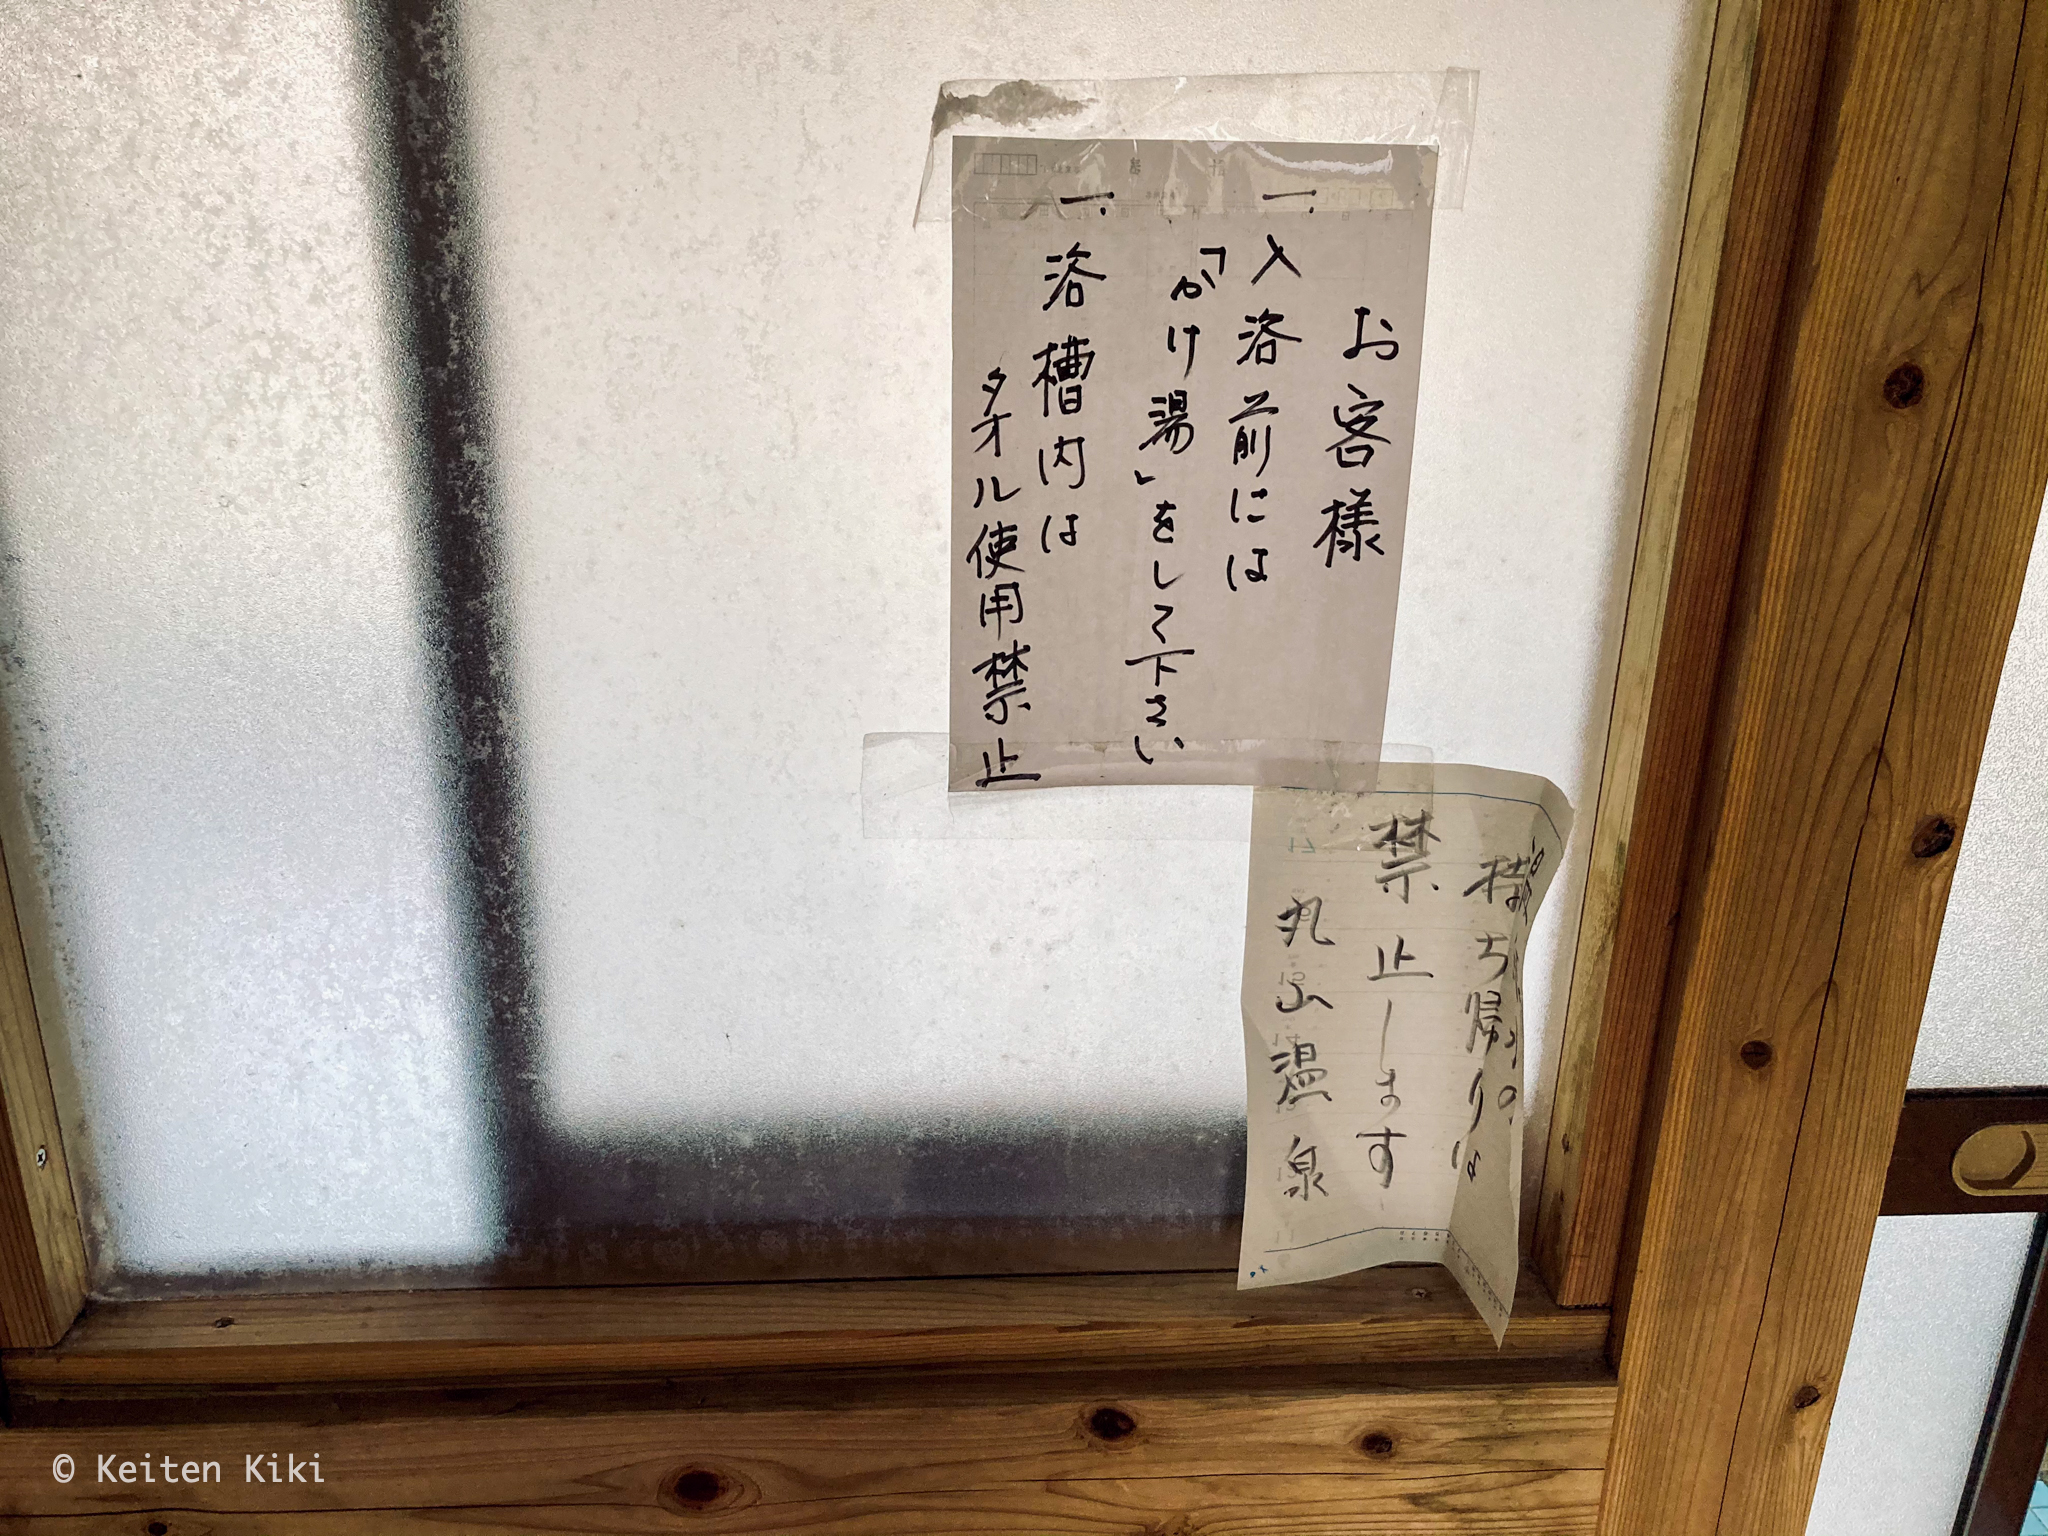 お客様
一. 入浴前には
「かけ湯」をして下さい
一. 浴槽内は
タオル使用禁止
持ち帰りは
禁止します
丸山温泉
© Keiten Kiki